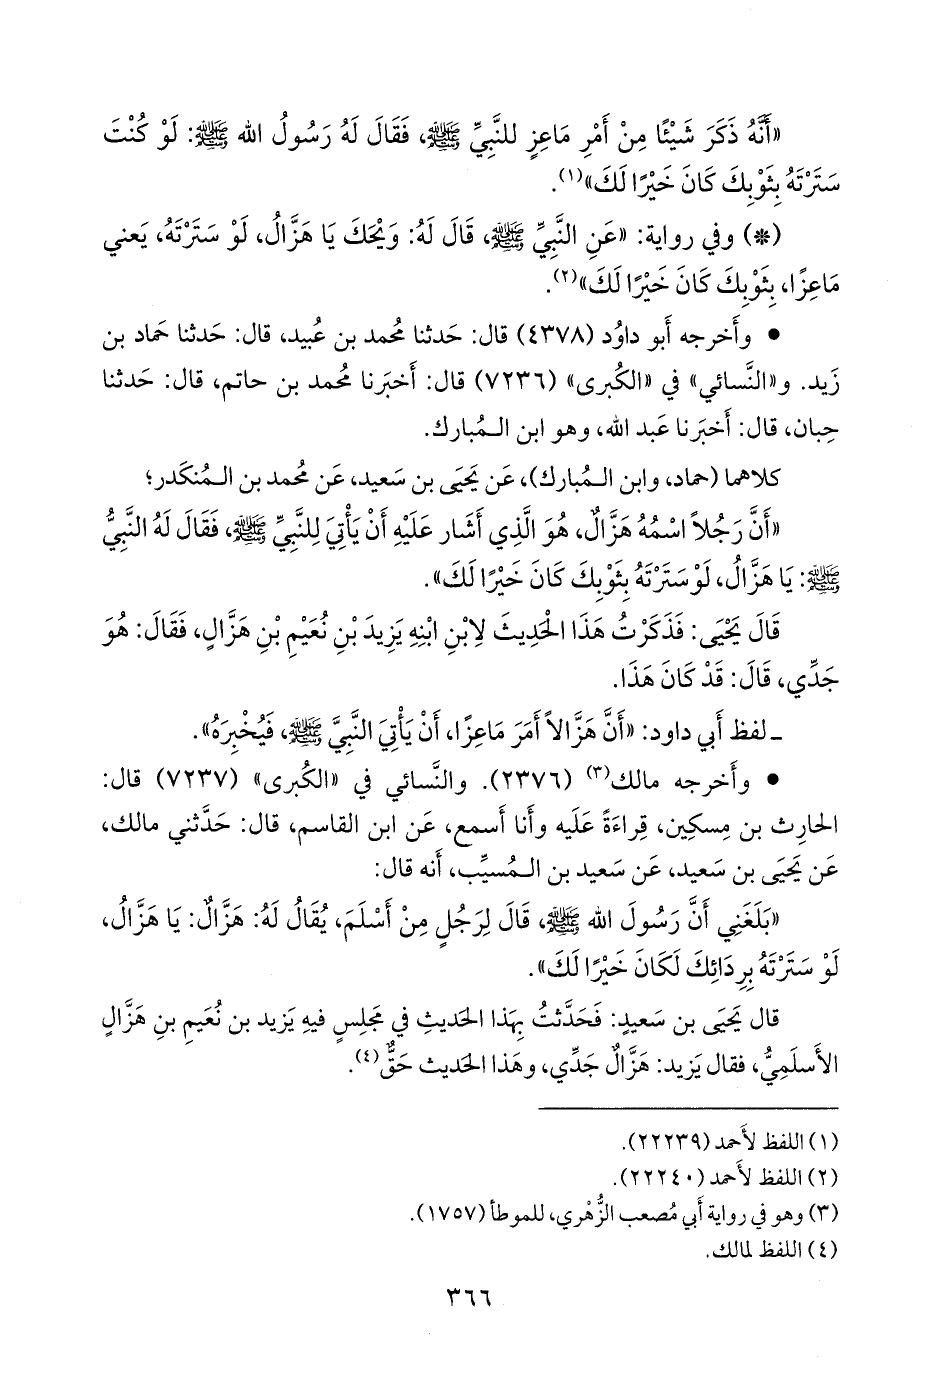 «أَنَّهُ ذَكَرَ شَيْئًا مِنْ أَمْرِ مَاعِزٍ للنَّبِيِّ ﷺ، فَقَالَ لَهُ رَسُولُ الله ﷺ: لَوْ كُنْتَ
سَتَرْتَهُ بِثَوْبِكَ كَانَ خَيْرًا لَكَ»(١).
(*) وفي رواية: «عَنِ النَّبِيِّ ﷺ، قَالَ لَهُ: وَيْحَكَ يَا هَزَّالُ، لَوْ سَتَرْتَهُ، يَعني
مَاعِزًا، بِثَوْبِكَ كَانَ خَيْرًا لَكَ»(٢).
• وأَخرجه أَبو داوُد (٤٣٧٨) قال: حَدثنا مُحمد بن عُبيد، قال: حَدثنا حَماد بن
زَيد. و«النَّسائي» في «الكُبرى» (٧٢٣٦) قال: أَخبَرنا مُحمد بن حاتم، قال: حَدثنا
حِبان، قال: أَخبَرنا عَبد الله، وهو ابن الـمُبارك.
كلاهما (حماد، وابن الـمُبارك)، عَن يَحيَى بن سَعيد، عَن مُحمد بن الـمُنكَدر؛
«أَنَّ رَجُلاً اسْمُهُ هَزَّالٌ، هُوَ الَّذِي أَشَار عَلَيْهِ أَنْ يَأْتِيَ لِلنَّبِيِّ ﷺ، فَقَالَ لَهُ النَّبِيُّ
ﷺ: يَا هَزَّالُ، لَوْ سَتَرْتَهُ بِثَوْبِكَ كَانَ خَيْرًا لَكَ».
قَالَ يَحْيَى: فَذَكَرْتُ هَذَا الْحَدِيثَ لِابْنِ ابْنِهِ يَزِيدَ بْنِ نُعَيْمِ بْنِ هَزَّالٍ، فَقَالَ: هُوَ
جَدِّي، قَالَ: قَدْ كَانَ هَذَا.
ـ لفظ أَبي داود: «أَنَّ هَزَّالاً أَمَرَ مَاعِزًا، أَنْ يَأْتِيَ النَّبِيَّ ﷺ، فَيُخْبِرَهُ».
• وأَخرجه مالك(٣) (٢٣٧٦). والنَّسائي في «الكُبرى» (٧٢٣٧) قال:
الحارِث بن مِسكِين، قِراءَةً عَلَيه وأَنا أَسمع، عَن ابن القاسم، قال: حَدَّثني مالك،
عَن يَحيَى بن سَعيد، عَن سَعيد بن الـمُسيِّب، أَنه قال:
«بَلَغَنِي أَنَّ رَسُولَ الله ﷺ، قَالَ لِرَجُلٍ مِنْ أَسْلَمَ، يُقَالُ لَهُ: هَزَّالٌ: يَا هَزَّالُ،
لَوْ سَتَرْتَهُ بِرِدَائِكَ لَكَانَ خَيْرًا لَكَ».
قال يَحيَى بن سَعيدٍ: فَحَدَّثتُ بِهَذا الحَديثِ في مَجلِسٍ فيهِ يَزيد بن نُعَيمِ بنِ هَزَّالٍ
الأَسلَمِيُّ، فقال يَزيد: هَزَّالٌ جَدِّي، وهَذا الحَديث حَقٌّ(٤).
(١) اللفظ لأَحمد (٢٢٢٣٩).
(٢) اللفظ لأَحمد (٢٢٢٤٠).
(٣) وهو في رواية أَبي مُصعب الزُّهْري، للموطأ (١٧٥٧).
(٤) اللفظ لمالك.
٣٦٦